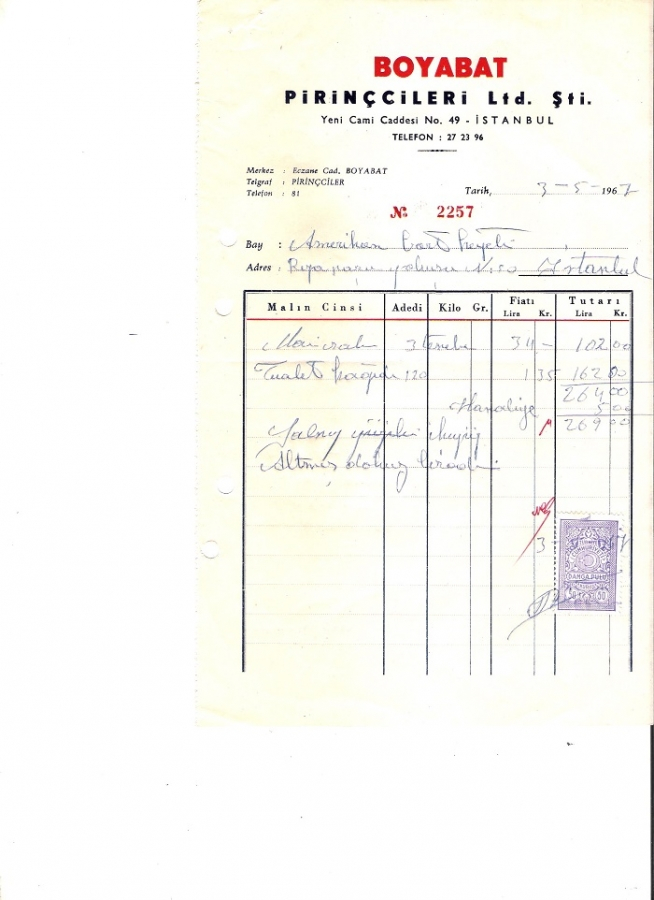 BOYABAT
PİRİNÇCİLERİ Ltd. Şti.
Yeni Cami Caddesi No. 49 - İSTANBUL
TELEFON : 27 23 96
Merkez : Eczane Cad. BOYABAT
Telgraf : PİRİNÇCİLER
Telefon : 81
Tarih, 3-5-1967
№ 2257
Bay : Amerikan bort heyeti
Adres : Rıza paşa yokuşu No 50 İstanbul
Malın Cinsi Adedi Kilo Gr. Fiatı Lira Kr. Tutarı Lira Kr.
3 34 - 102 00
Tualet kağıdı 120 1 35 162 00
264 00
Hamaliye 5 00
269 00
Yalnız ikiyüz
Altmış dokuz liradır
3 67
DAMGA PULU
30 30